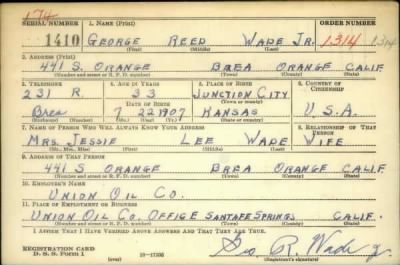 174
SERIAL NUMBER 1. NAME (Print) ORDER NUMBER
1410 GEORGE REED WADE JR. 1314 1314
(First) (Middle) (Last)
2. ADDRESS (Print)
441 S. ORANGE BREA ORANGE CALIF.
(Number and street or R. F. D. number) (Town) (County) (State)
3. TELEPHONE 4. AGE IN YEARS 5. PLACE OF BIRTH 6. COUNTRY OF CITIZENSHIP
231 R 33 JUNCTION CITY
DATE OF BIRTH (Town or county)
Brea 7 22 1907 KANSAS U.S.A.
(Exchange) (Number) (Mo.) (Day) (Yr.) (State or country)
7. NAME OF PERSON WHO WILL ALWAYS KNOW YOUR ADDRESS 8. RELATIONSHIP OF THAT PERSON
MRS. JESSIE LEE WADE WIFE
(Mr., Mrs., Miss) (First) (Middle) (Last)
9. ADDRESS OF THAT PERSON
441 S ORANGE BREA ORANGE CALIF.
(Number and street or R. F. D. number) (Town) (County) (State)
10. EMPLOYER'S NAME
UNION OIL CO.
11. PLACE OF EMPLOYMENT OR BUSINESS
UNION OIL CO. OFFICE SANTA FE SPRINGS CALIF.
(Number and street or R. F. D. number) (Town) (County) (State)
I AFFIRM THAT I HAVE VERIFIED ABOVE ANSWERS AND THAT THEY ARE TRUE.
REGISTRATION CARD
D. S. S. Form 1 (over) 16-17105 Geo R. Wade Jr.
(Registrant's signature)